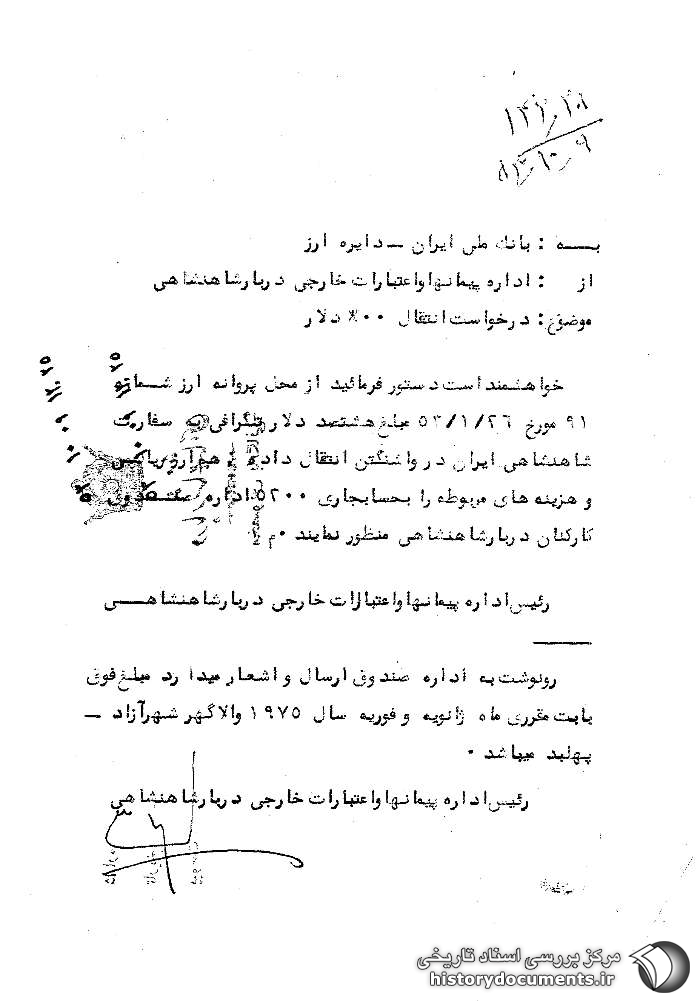 ۱۴۲۰۳۸
به : بانك ملی ایران ــ دایره ارز
از : اداره پیمانها و اعتبارات خارجی دربار شاهنشاهی
موضوع : درخواست انتقال ۸۰۰ دلار
خواهشمند است دستور فرمائید از محل پروانه ارز شماره
۹۱ مورخ ۵۳/۱/۲۶ مبلغ هشتصد دلار تلگرافی به سفارت
شاهنشاهی ایران در واشنگتن انتقال داده
و هزینه های مربوطه را بحسابجاری ۵۲۰۰ اداره صندوق
کارکنان دربار شاهنشاهی منظور نمایند ۰م
رئیس اداره پیمانها و اعتبارات خارجی دربار شاهنشاهــی
رونوشت به اداره صندوق ارسال و اشعار میدارد مبلغ فوق
بابت مقرری ماه ژانویه و فوریه سال ۱۹۷۵ والاگهر شهرآزاد ــ
پهلبد میباشد ۰
رئیس اداره پیمانها و اعتبارات خارجی دربار شاهنشاهی
مرکز بررسی اسناد تاریخی
historydocuments.ir